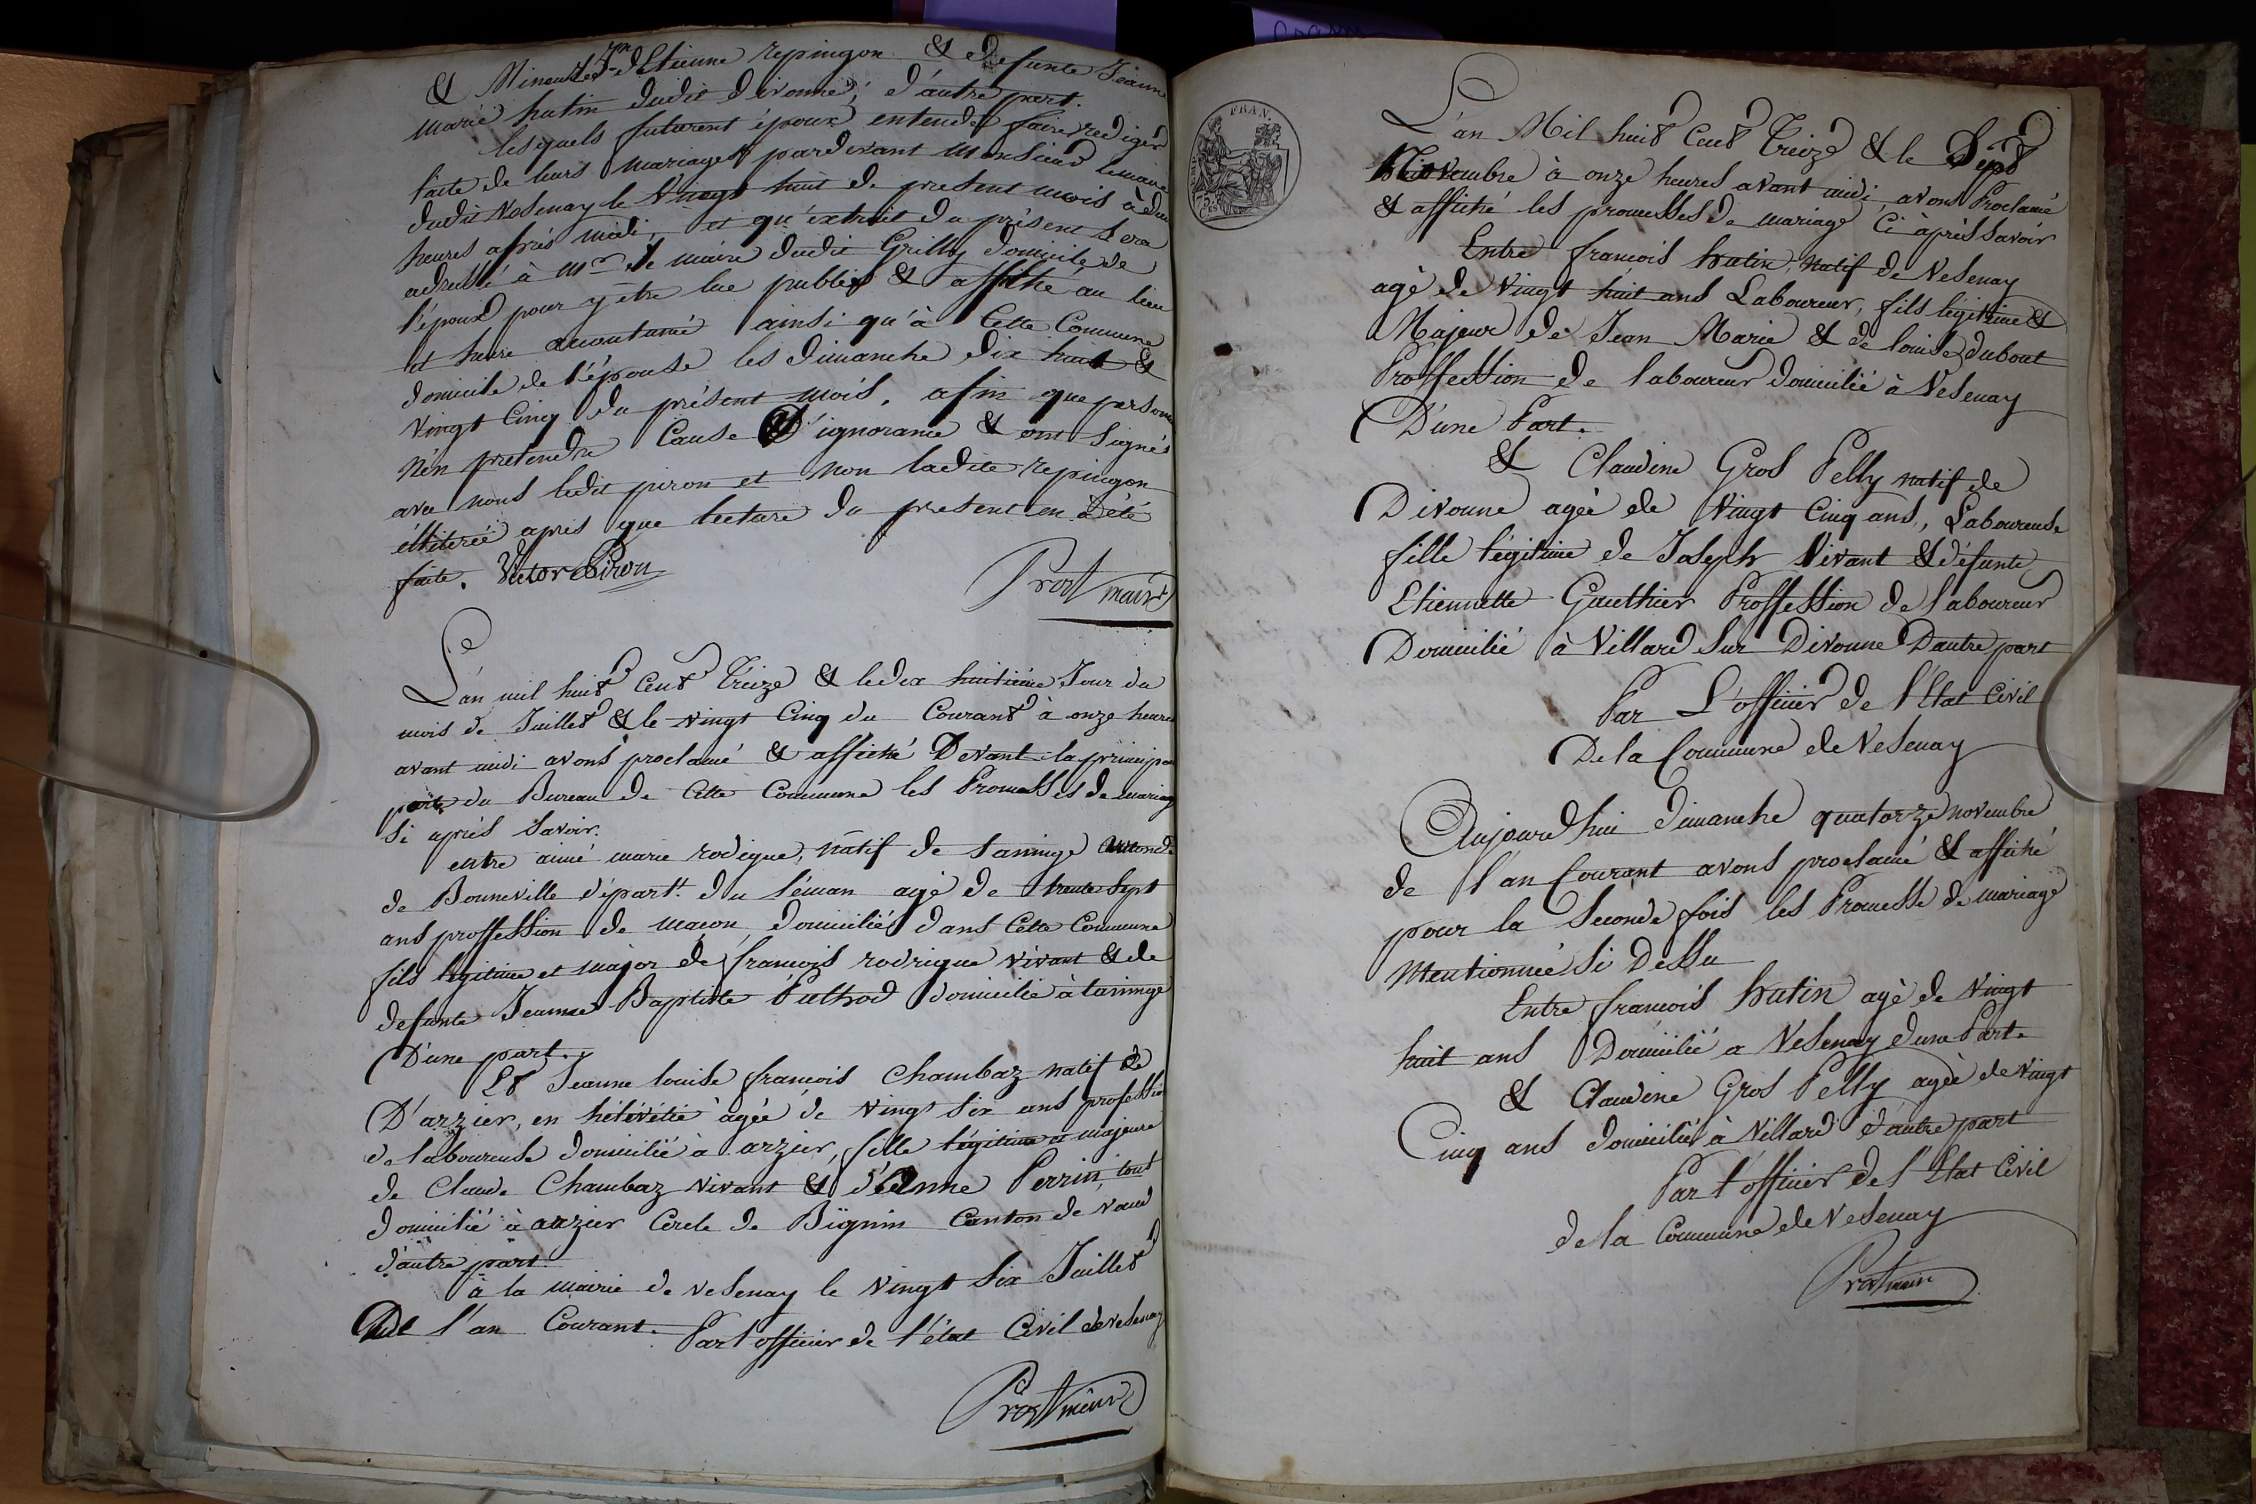 & Mineure d'Etienne repingon & defunte Jeanne
marie hutin dudit divonne, d'autre part.
lesquels futurent époux entende faire rediger
l'acte de leurs mariages pardevant Monsieur lemaire
dudit Vesenay le vingt huit de present mois à deux
heures après midi, et qu'extrait du présent sera
adressé à mr le maire dudit Grilly domicile de
l'époux pour y être lue publier & affiché au lieu
et heure accoutumé ainsi qu'à Cette Commune
domicile de l'épouse les dimanche dix huit &
vingt Cinq du présent mois, afin que personne
n'en pretendre Cause d'ignorance & ont signés
avec nous ledit piron et non ladite repingon
illiterée après que lecture du present en a été
faite. Victor Piron
Prost maire
L'an mil huit Cent Treize & le dix huitième Jour du
mois de Juillet & le vingt Cinq du Courant à onze heures
avant midi avons proclamé & affiché Devant la principale
porte du Bureau de Cette Commune les Promesses de mariage
si après savoir.
entre aimé marie rodigue, natif de taninge
de Bonneville départt. du léman agé de trente sept
ans proffession de maçon, domiciliés dans Cette Commune
fils légitime et major de françois rodrigue vivant & de
defunte Jeanne Baptiste Puthod domicilié à taninge
D'une part.
Et Jeanne louise françois Chambaz natif de
D'arzier, en hélévétie agée de vingt six ans profession
de laboureuse domicilié à arzier, fille légitime et majeure
de Claude Chambaz vivant & d'éanne Perrin, tout
domicilié à arzier Cercle de Bignin Canton de Vaud
d'autre part.
à la mairie de vesenay le vingt six Juillet
de l'an Courant. Par l'officier de l'état Civil de vesenay
Prost maire
FRAN.
L'an Mil huit Cent Treize & le Sept
Novembre à onze heures avant midi, avons Proclamé
& affiché les promesses de mariage Ci après savoir
Entre françois hutin, natif de Vesenay
agé de vingt huit ans Laboureur, fils légitime &
Majeur de Jean Marie & de louise dubout
Proffession de laboureur domicilié à Vesenay
D'une Part.
& Claudine Gros Pelly natif de
Divonne agée de vingt Cinq ans, Laboureuse
fille légitime de Joseph Vivant & défunte
Etiennette Gauthier Proffession de laboureur
Domicilié à Villard sur Divonne Dautre part
Par L'officier de l'Etat Civil
De la Commune de Vesenay
Aujourd'hui dimanche quatorze novembre
de l'an Courant avons proclamé & affiché
pour la Seconde fois les Promesse de mariage
Mentionnée Si Dessu
Entre françois hutin agé de vingt
huit ans Domicilié a Vesenay dune Part.
& Claudine Gros Pelly agée de vingt
Cinq ans domicilié à Villard d'autre part
Par l'officier de l'Etat Civil
de la Commune de Vesenay
Prost maire